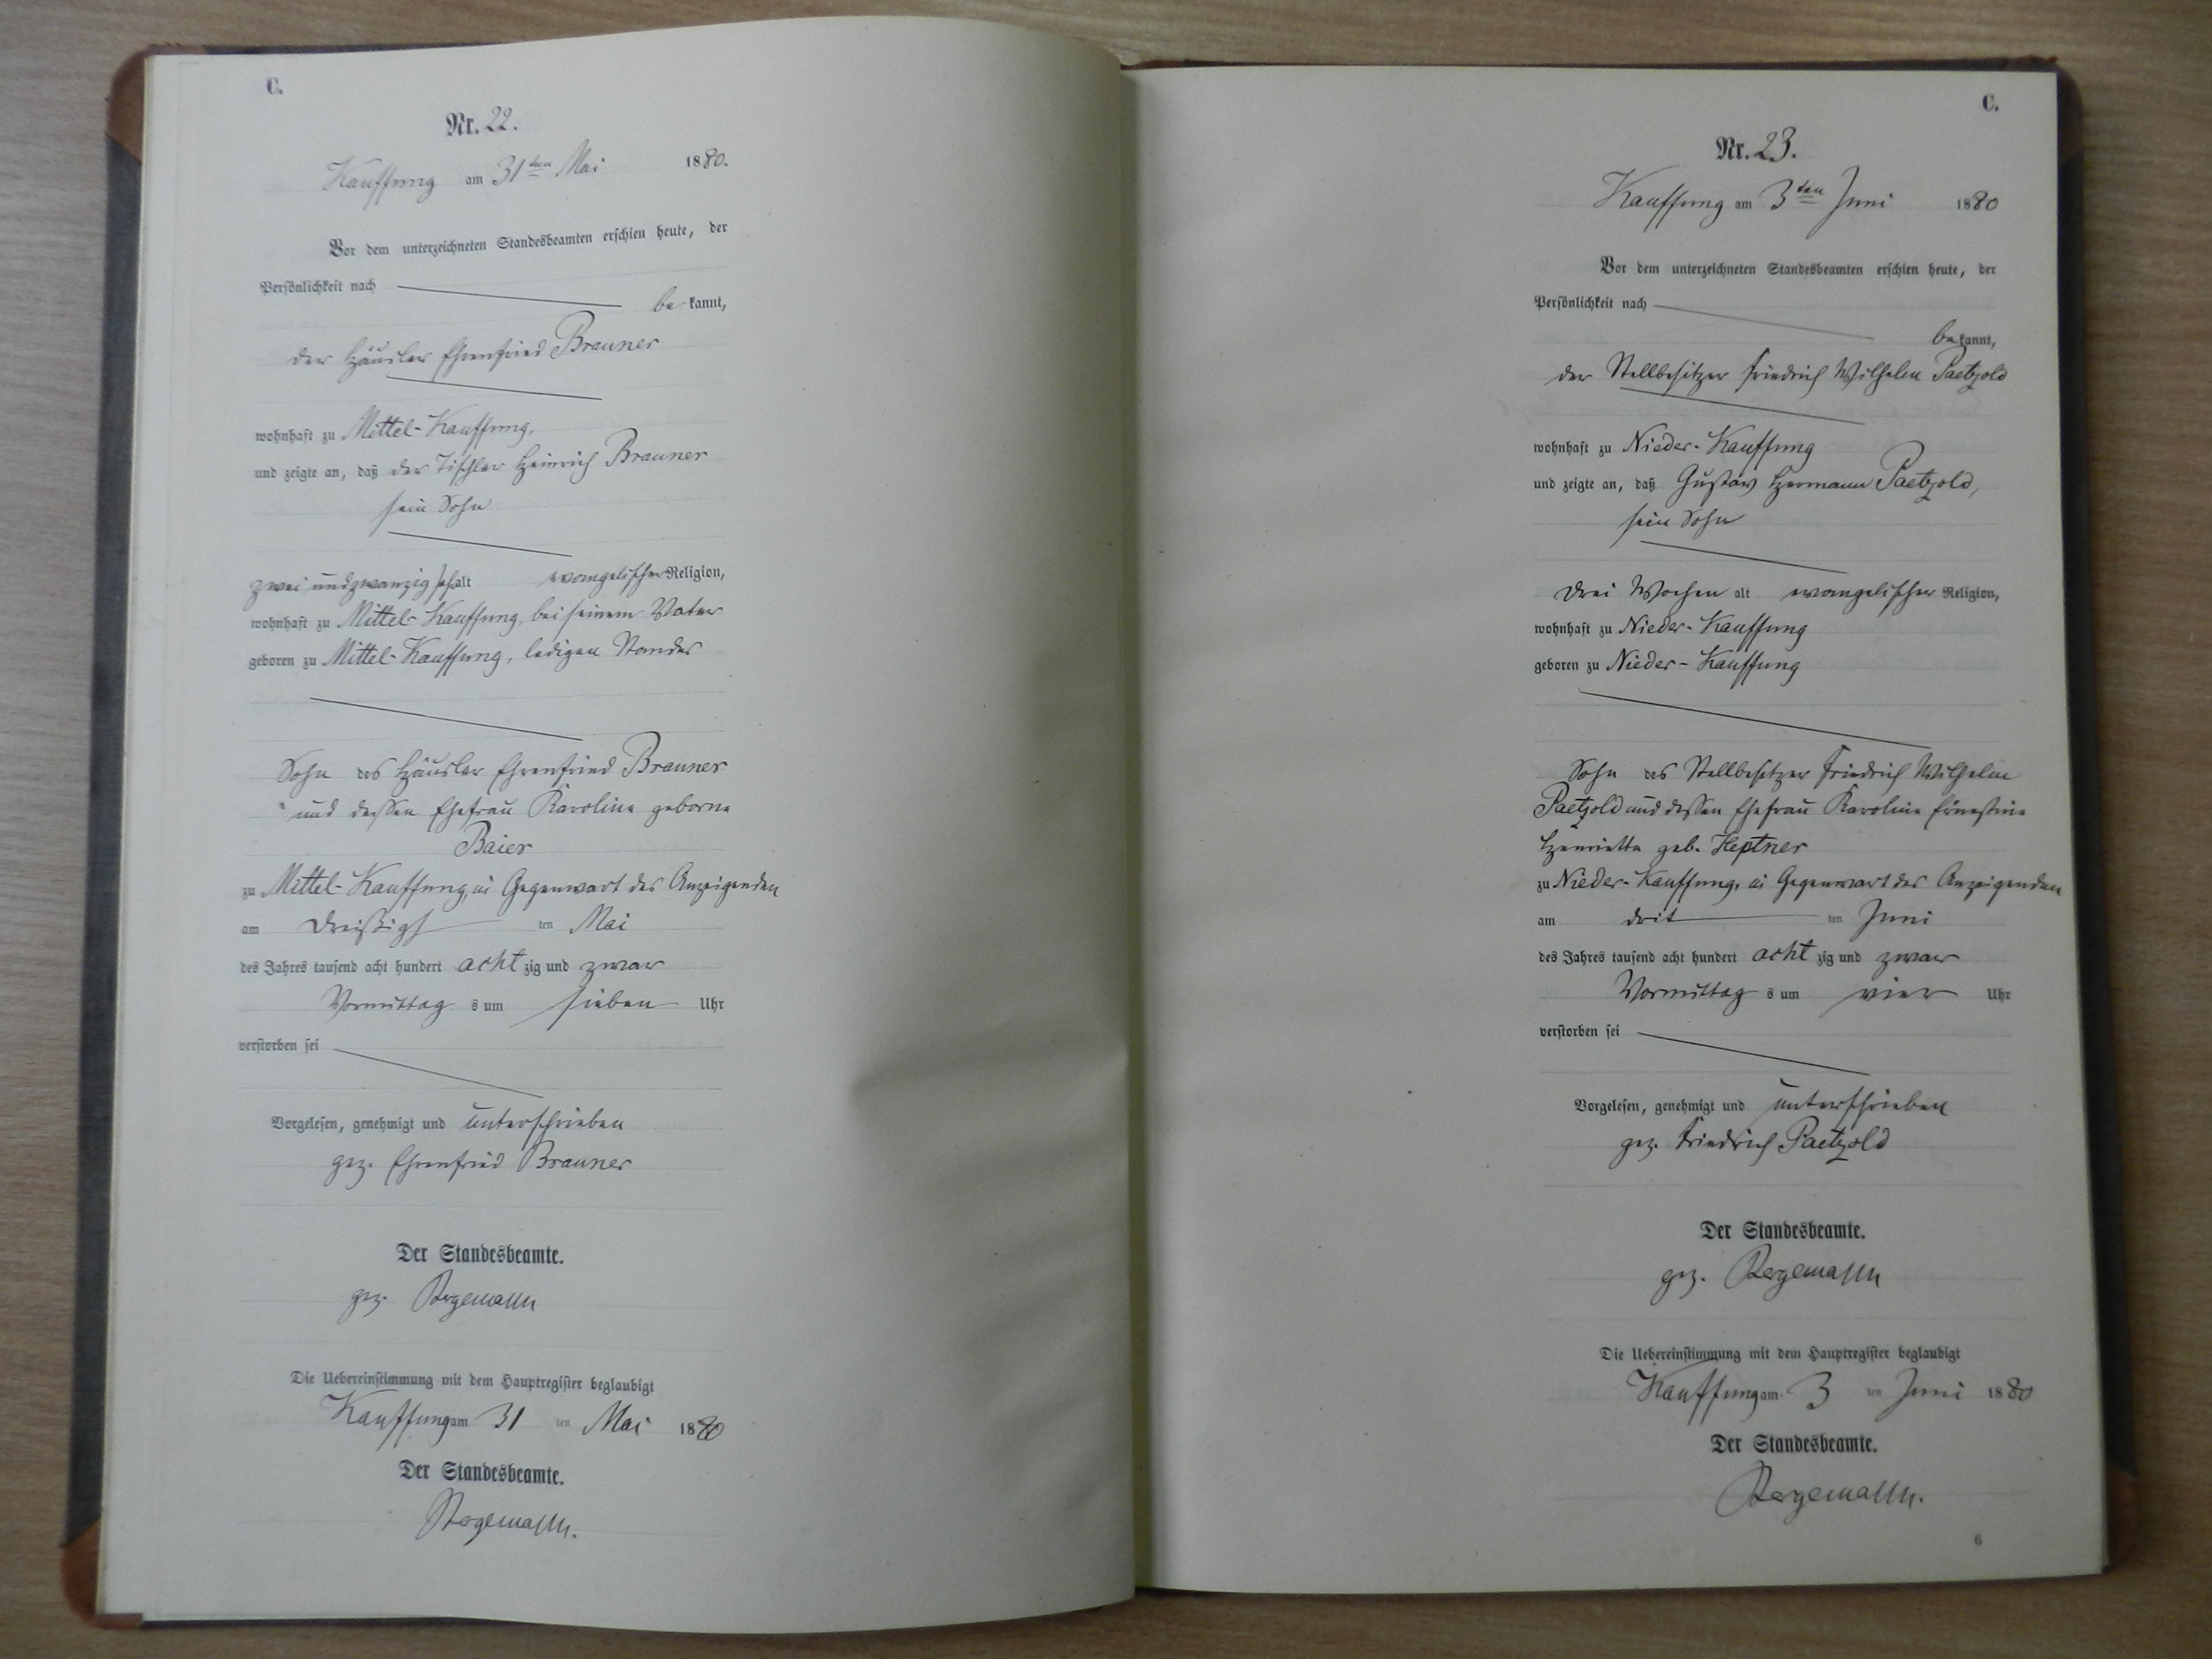 C.
Nr. 22.
Kauffung am 31ten Mai 1880.
Vor dem unterzeichneten Standesbeamten erschien heute, der
Persönlichkeit nach
bekannt,
der Häusler Ehrenfried Brauner
wohnhaft zu Mittel-Kauffung,
und zeigte an, daß der Tischler Heinrich Brauner
sein Sohn
zwei und zwanzig Jahr alt evangelischer Religion,
wohnhaft zu Mittel-Kauffung, bei seinem Vater
geboren zu Mittel-Kauffung, ledigen Standes
Sohn des Häusler Ehrenfried Brauner
und dessen Ehefrau Karoline geborne
Baier
zu Mittel-Kauffung, in Gegenwart des Anzeigenden
am dreißigsten Mai
des Jahres tausend acht hundert achtzig und zwar
Vormittags um sieben Uhr
verstorben sei
Vorgelesen, genehmigt und unterschrieben
gez. Ehrenfried Brauner
Der Standesbeamte.
gez. Bergemann
Die Uebereinstimmung mit dem Hauptregister beglaubigt
Kauffung am 31 ten Mai 1880
Der Standesbeamte.
Bergemann.
C.
Nr. 23.
Kauffung am 3ten Juni 1880
Vor dem unterzeichneten Standesbeamten erschien heute, der
Persönlichkeit nach
bekannt,
der Stellbesitzer Friedrich Wilhelm Paetzold
wohnhaft zu Nieder-Kauffung
und zeigte an, daß Gustav Hermann Paetzold,
sein Sohn
drei Wochen alt evangelischer Religion,
wohnhaft zu Nieder-Kauffung
geboren zu Nieder-Kauffung
Sohn des Stellbesitzer Friedrich Wilhelm
Paetzold und dessen Ehefrau Karoline Ernestine
Henriette geb. Heptner
zu Nieder-Kauffung, in Gegenwart des Anzeigenden
am dritten Juni
des Jahres tausend acht hundert achtzig und zwar
Vormittags um vier Uhr
verstorben sei
Vorgelesen, genehmigt und unterschrieben
gez. Friedrich Paetzold
Der Standesbeamte.
gez. Bergemann
Die Uebereinstimmung mit dem Hauptregister beglaubigt
Kauffung am 3 ten Juni 1880
Der Standesbeamte.
Bergemann.
6